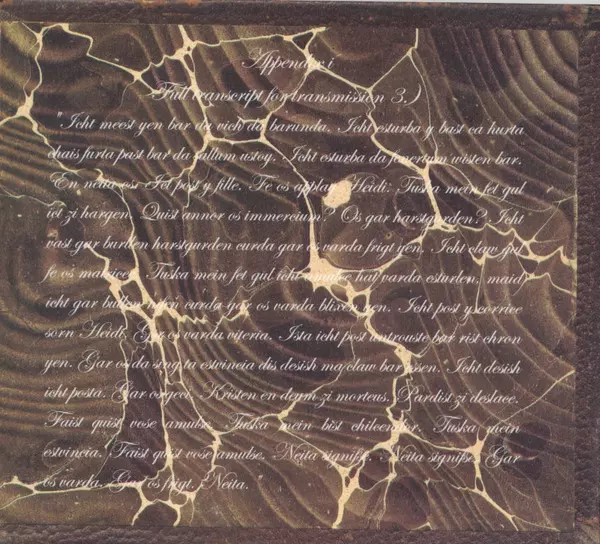 Appendix i
Full transcript for transmission 3.)
"Icht meest yen bar da vich da barunda. Icht esturba y bast ca hurta
chais furta past bar da fallum ustoy. Icht esturba da fenertum wisten bar.
En neita esi Jet post y fille. Fe os applau Heidi: Tuska mein fet gul
iet zi hargen. Quist annor os immercium? Os gar harstgurden? Icht
vast gur burden harstgurden curda gar os varda frigt yen. Icht claw
fe os Tuska mein fet gul icht hat varda esturden, maid
icht gar curda gar os varda blixen yen. Icht post y corrice
sorn Heidi. Gar os varda viteria. Ista icht post untrouste bar rist chron
yen. Gar os da sing ta estvincia dis desish ma claw bar essen. Icht desish
icht posta. Gar osgeci. Kristen en deym zi morteus. Pardist zi deslace.
Faist quist vose amulse. Tuska mein bist Tuska mein
estvincia. Faist quist vose amulse. Neita signifse. Neita signifse. Gar
os varda. Gar os frigt. Neita.